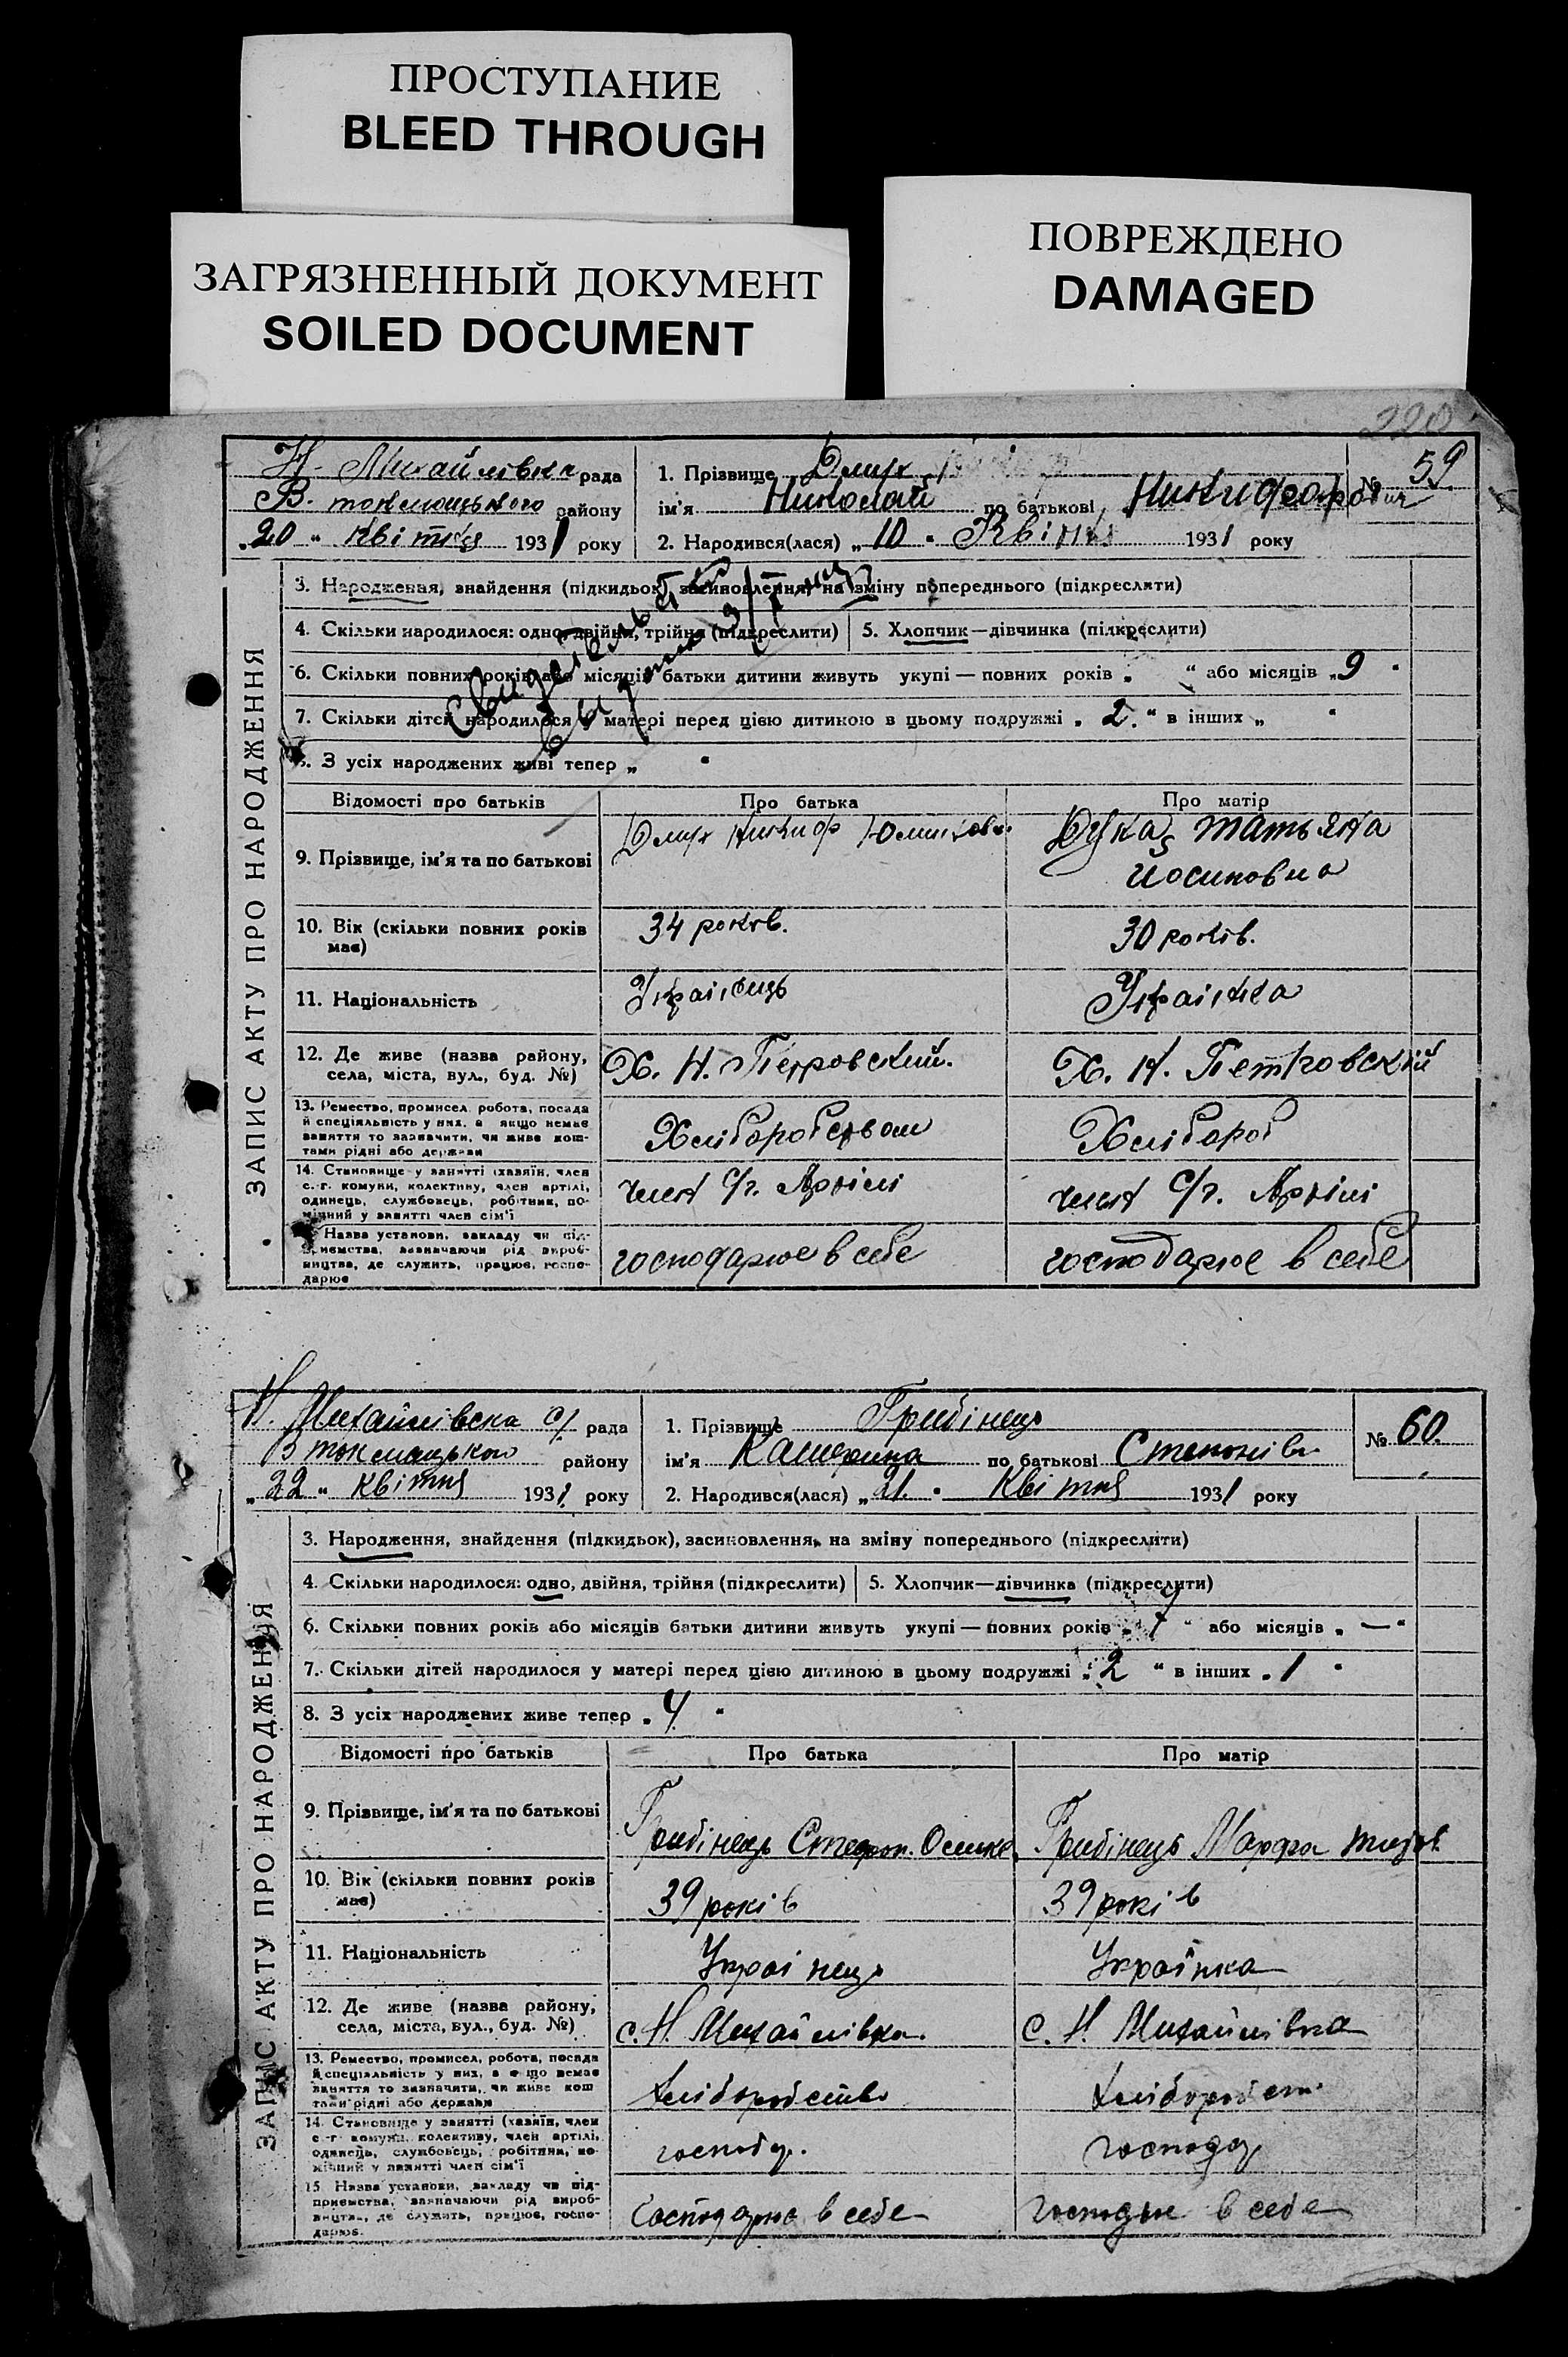 ПРОСТУПАНИЕ
BLEED THROUGH
ЗАГРЯЗНЕННЫЙ ДОКУМЕНТ
SOILED DOCUMENT
ПОВРЕЖДЕНО
DAMAGED
220
Н. Михайлівка рада
В. токмацького району
„20 " квітня 1931 року
1. Прізвище
ім'я Николай по батькові Никифорович
№ 59
2. Народився(лася) „10 " Квітня 1931 року
ЗАПИС АКТУ ПРО НАРОДЖЕННЯ
3. Народження, знайдення (підкидьок), засиновлення, на зміну попереднього (підкреслити)
4. Скільки народилося: одно, двійня, трійня (підкреслити) 5. Хлопчик—дівчинка (підкреслити)
6. Скільки повних років або місяців батьки дитини живуть укупі — повних років „ " або місяців „9 "
7. Скільки дітей народилося у матері перед цією дитиною в цьому подружжі „ 2. " в інших „ "
8. З усіх народжених живі тепер „ "
Відомості про батьків Про батька Про матір
9. Прізвище, ім'я та по батькові Никифор Татьяна
Йосиповна
10. Вік (скільки повних років 34 років. 30 років.
має)
11. Національність Українець Українка
12. Де живе (назва району, Х. Н. Петровский. Х. Н. Петровский
села, міста, вул., буд. №)
13. Ремество, промисел, робота, посада
й спеціяльність у них, а якщо немає Хліборобством Хлібороб
заняття то зазначити, чи живе кош-
тами рідні або держави
14. Становище у занятті (хазяїн, член
с.-г. комуни, колективу, член артілі, член С/г. Артілі член С/г. Артілі
одинець, службовець, робітник, по-
мічний у занятті член сім'ї
Назва установи, закладу чи під-
приємства, зазначаючи рід вироб- господарює в себе господарює в себе
ництва, де служить, працює, госпо-
дарює
Н. Михайлівска с/ рада
В токмацького району
„22 " квітня 1931 року
1. Прізвище Грибінець
ім'я Катерина по батькові Степанівн
№ 60.
2. Народився(лася) „21. " Квітня 1931 року
ЗАПИС АКТУ ПРО НАРОДЖЕННЯ
3. Народження, знайдення (підкидьок), засиновлення, на зміну попереднього (підкреслити)
4. Скільки народилося: одно, двійня, трійня (підкреслити) 5. Хлопчик—дівчинка (підкреслити)
6. Скільки повних років або місяців батьки дитини живуть укупі — повних років „ " або місяців „ — "
7. Скільки дітей народилося у матері перед цією дитиною в цьому подружжі „ 2 " в інших „ 1 "
8. З усіх народжених живе тепер „ 4 "
Відомості про батьків Про батька Про матір
9. Прізвище, ім'я та по батькові
Грибінець Грибінець Марфа
10. Вік (скільки повних років
має) 39 років 39 років
11. Національність Українець Українка
12. Де живе (назва району,
села, міста, вул., буд. №) с. Н. Михайлівка. с. Н. Михайлівка
13. Ремество, промисел, робота, посада
й спеціяльність у них, а якщо немає
заняття то зазначити, чи живе кош хліборобство
тами рідні або держави
14. Становище у занятті (хазяїн, член
с.-г. комуни, колективу, член артілі,
одинець, службовець, робітник, по- господар. господар
мічний у занятті член сім'ї
15. Назва установи, закладу чи під-
приємства, зазначаючи рід вироб-
ництва, де служить, працює, госпо- в себе в себе
дарює.